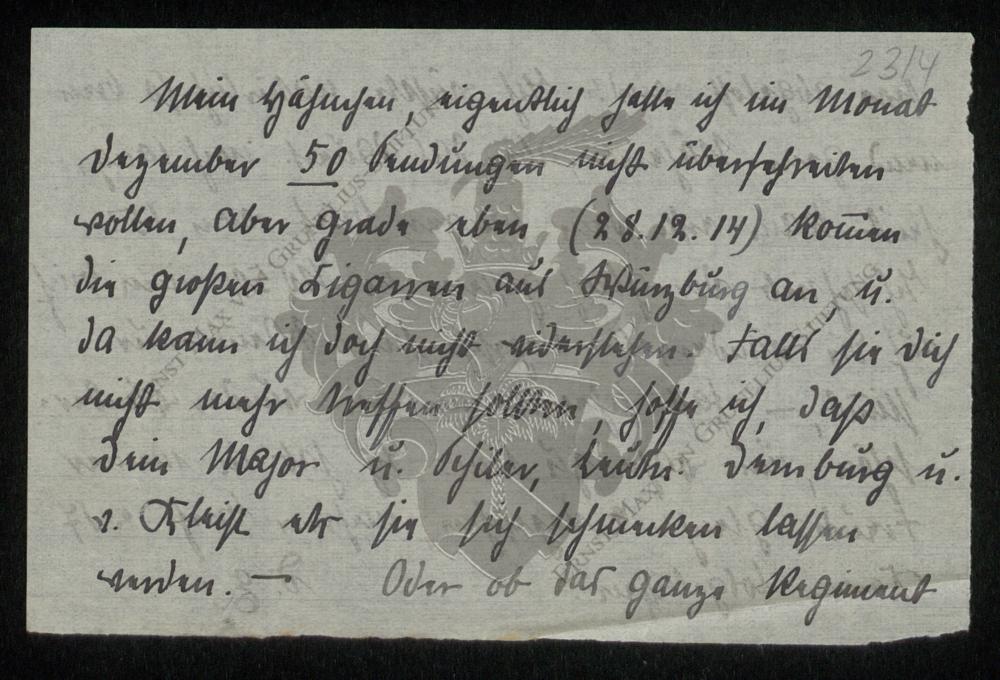 23/4
Mein Hähnchen, eigentlich hatte ich im Monat
Dezember 50 Sendungen nicht überschreiten
wollen, aber grade eben (28.12.14) kom̅en
die großen Cigarren aus Würzburg an, u.
da kann ich doch nicht widerstehen. Falls sie dich
nicht mehr treffen sollten, hoffe ich, daß
dein Major u. Leutn. Dernburg u.
v. Kleist etc sie sich schmecken lassen
werden. — Oder ob das ganze Regiment